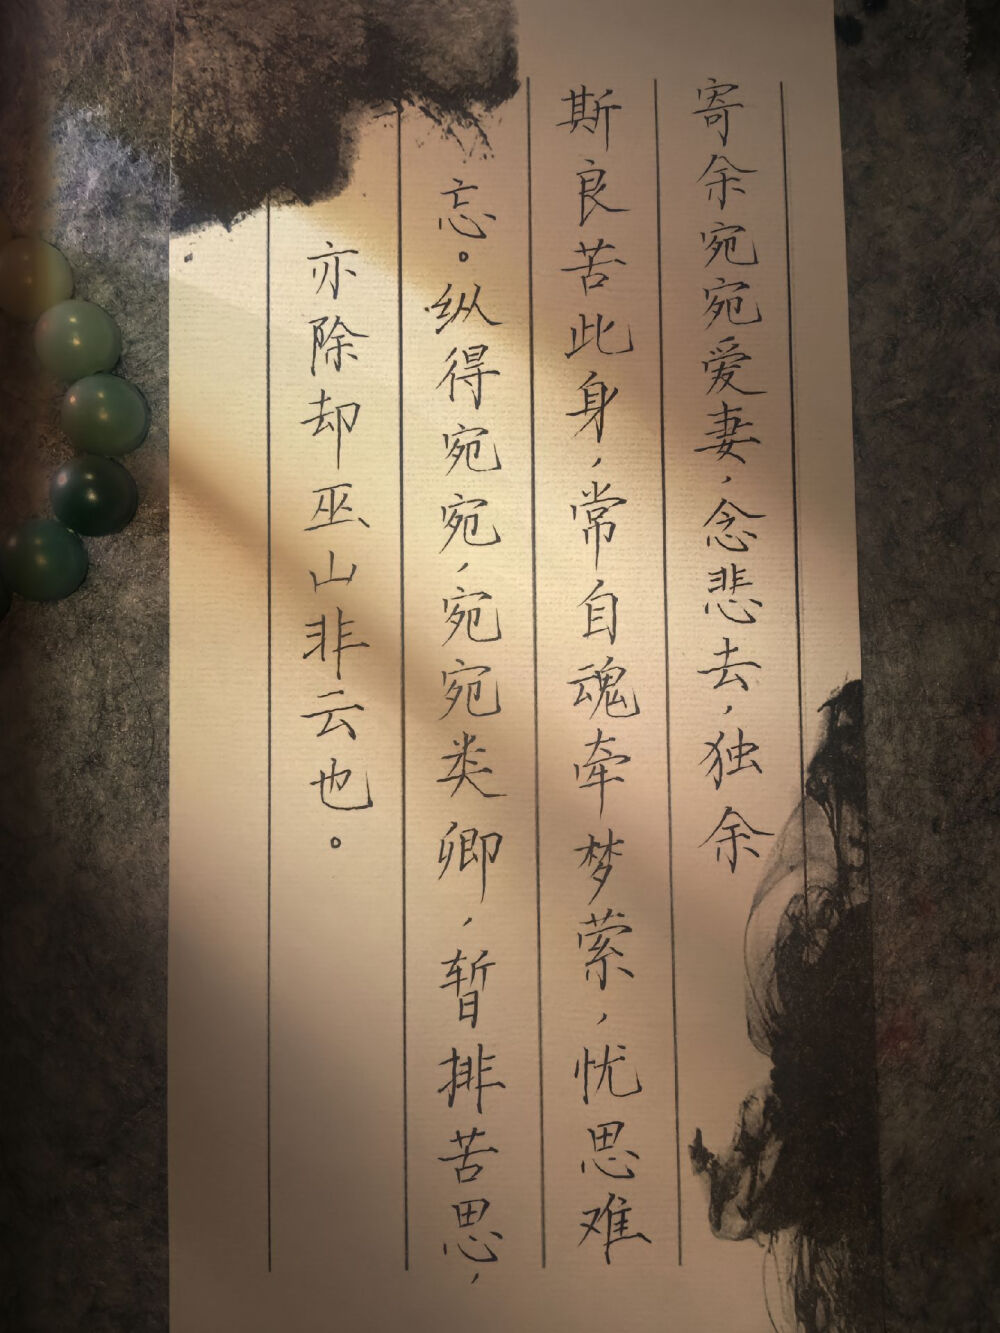 寄余宛宛爱妻，念悲去，独余
斯良苦此身，常自魂牵梦萦，忧思难
忘。纵得宛宛，宛宛类卿，暂排苦思，
亦除却巫山非云也。